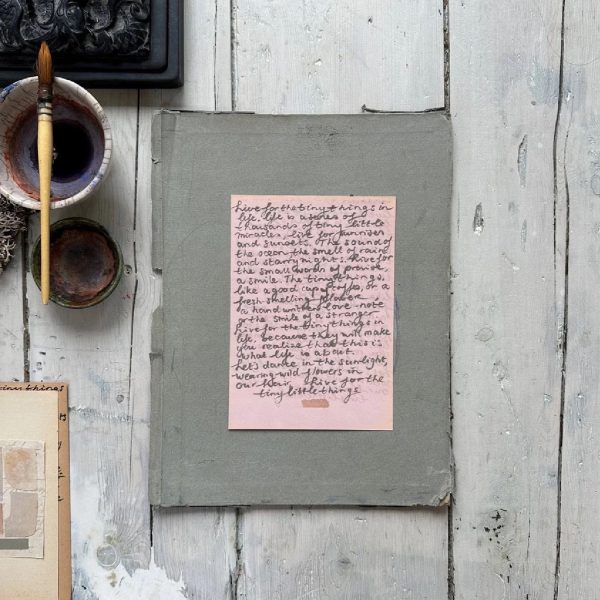 Live for the tiny things in
life. Life is a series of
thousands of tiny little
miracles, live for sunrises
and sunsets. The sound of
the ocean, the smell of rain
and starry nights. Live for
the small words of praise,
a smile. The tiny things,
like a good cup of coffee, or a
fresh smelling flower
a hand written love-note
or the smile of a stranger
Live for the tiny things in
life, because they will make
you realize that this is
what life is about.
Let's dance in the sunlight,
wearing wild flowers in
our hair. Live for the
tiny little things
tiny things